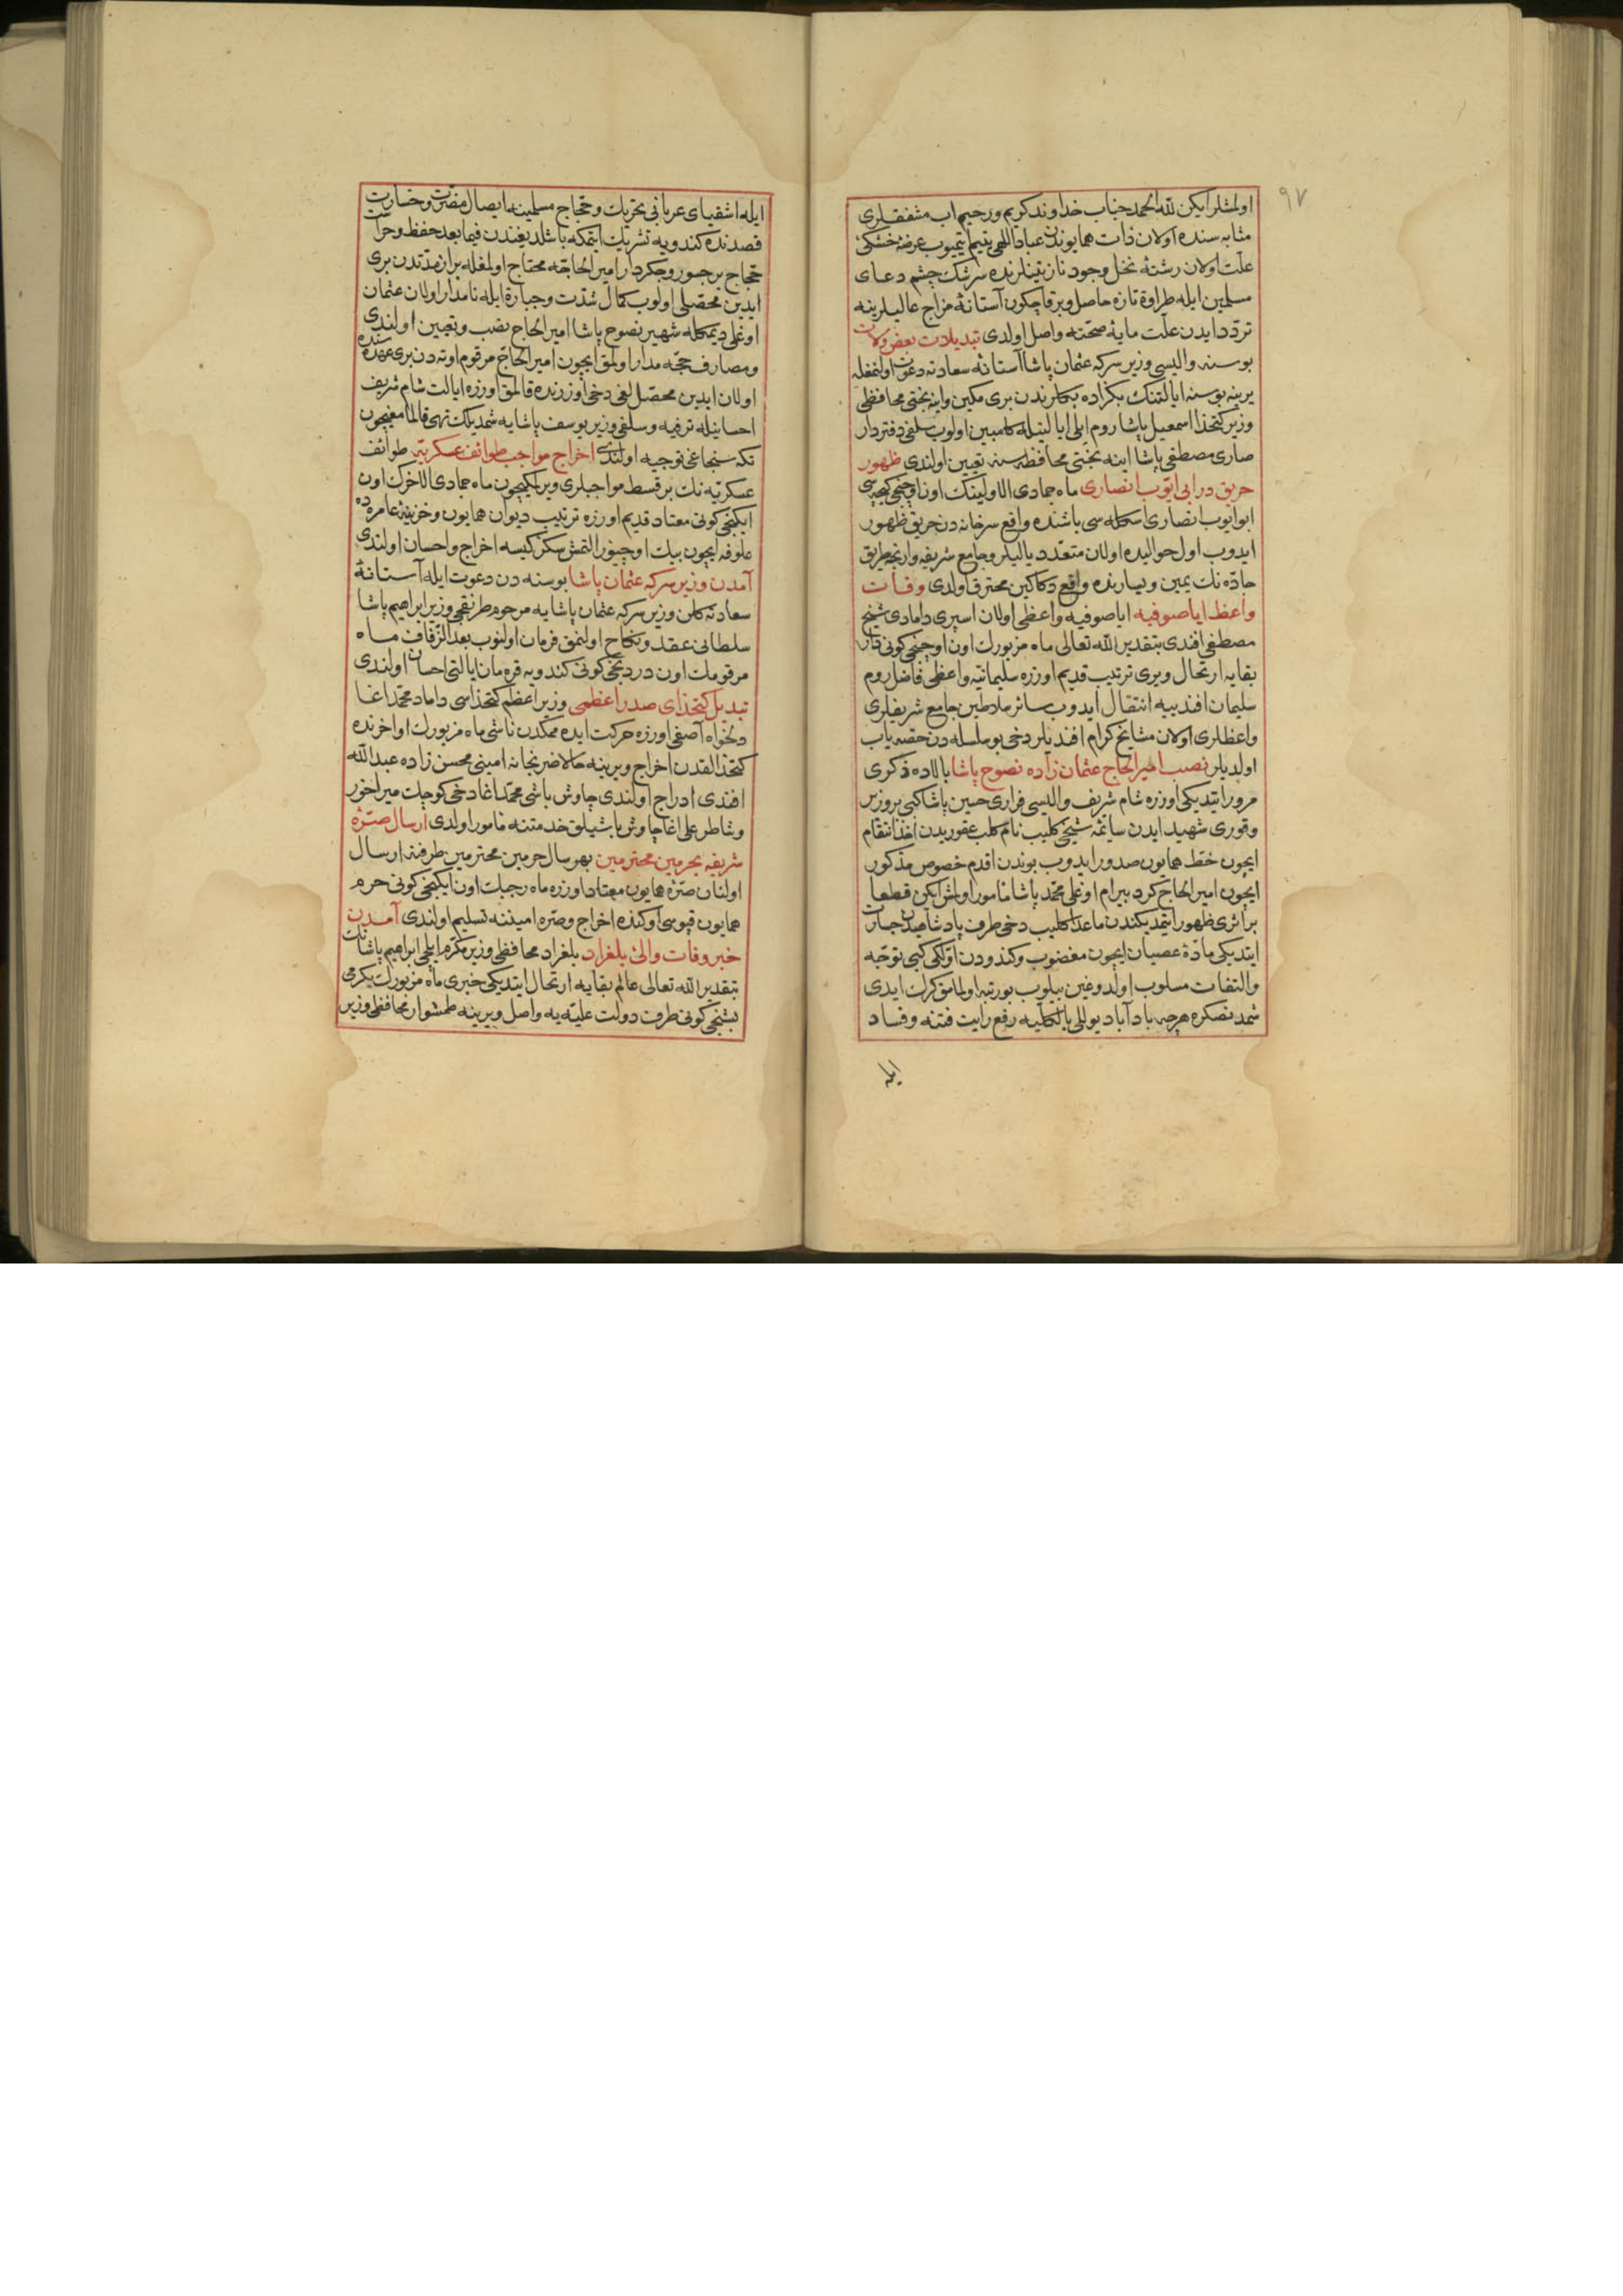 ٩٧
اولمشلر ایکن لله الحمد جناب خداوند کریم و رحیم اب مشفقلری
مثابه سنده اولان ذات همایوندن عباد اللهی یتیم ایتمیوب عرضۀ خشکئ
علّت اولان رشتۀ نخل وجود نازنینلرنده سرشک چشم دعای
مسلمین ایله طراوة تازه حاصل و برقاچ کون آستانۀ مزاج عالیلرینه
تردّد ایدن علّت مایۀ صحّته واصل اولدی تبدیلات بعض ولات
بوسنه والیسی وزیر سرکه عثمان پاشا آستانۀ سعادته دعوت اولنمغله
یرینه بوسنه ایالتنک بکزاده بکلرندن بری مکین و اینه بختی محافظی
وزیر کتخدا اسمعیل پاشا روم ایلی ایالتیله کامبین اولوب سلفی دفتردار
صاری مصطفی پاشا اینه بختی محافظه سنه تعیین اولندی ظهور
حریق در ابی ایّوب انصاری ماه جمادی الاولینک اون اوچنجی کیجه سی
ابو ایوب انصاری اسکله سی باشنده واقع سرخانه دن حریق ظهور
ایدوب اول حوالیده اولان متعدد یالیلر و جامع شریفه وارنجه طریق
جادّه نک یمین و یسارنده واقع دکاکین محترق اولدی وفات
واعظ ایاصوفیه ایاصوفیه واعظی اولان اسپری دامادی شیخ
مصطفی افندی بتقدیر الله تعالی ماه مزبورک اون اوچنجی کونی دار
بقایه ارتحال و یری ترتیب قدیم اوزره سلیمانیّه واعظی فاضل روم
سلیمان افندییه انتقال ایدوب سائر سلاطین جامع شریفلری
واعظلری اولان مشایخ کرام افندیلر دخی بو سلسله دن حصّه یاب
اولدیلر نصب امیر الحاج عثمان زاده نصوح پاشا بالاده ذکری
مرور ایتدیکی اوزره شام شریف والیسی فراری حسین پاشا کبی بر وزیر
وقوری شهید ایدن سائمه شیخی کلیب نام کلب عقوردن اخذ انتقام
ایچون خطّ همایون صدور ایدوب بوندن اقدم خصوص مذکور
ایچون امیر الحاج کرد بیرام اوغلی محمّد پاشا مأمور اولمش ایکن قطعا
بر اثری ظهور ایتمدیکندن ماعدا کلیب دخی طرف پادشاهیدن جسارت
ایتدیکی مادّۀ عصیان ایچون مغضوب و کندودن اوّلکی کبی توجّه
والتفات مسلوب اولدوغین بیلوب بو رتبه اولمامق کران ایدی
شمدنصکره هرچه باد آباد یوللی بالکلیه رفع رایت فتنه و فساد
ایله
ایله اشقیای عربانی تحریک و حجّاج مسلمینه ایصال مضرّت و خسارت
قصدنده کندویه تشریک ایتمکه باشلدیغندن فیمابعد حفظ و حراست
حجّاج بر جسور و جکردار امیر الحاجه محتاج اولمغله براز مدّتدن بری
ایدین محصّلی اولوب کمال شدّت و جبارة ایله نامدار اولان عثمان
اوغلی دیمکله شهیر نصوح پاشا امیر الحاج نصب و تعیین اولندی
و مصارف حجّه مدار اولمق ایچون امیر الحاج مرقوم اوته دن بری عهده سنده
اولان ایدین محصّللغی دخی اوزرنده قالمق اوزره ایالت شام شریف
احسانیله ترفیه و سلفی وزیر یوسف پاشایه شمدیلک تهی قالمامغیچون
تکه سنجاغی توجیه اولندی اخراج مواجب طوائف عسکریّه طوائف
عسکریّه نک بر قسط مواجبلری ویرلمکیچون ماه جمادی الاخرک اون
ایکنجی کونی معتاد قدیم اوزره ترتیب دیوان همایون و خزینۀ عامره ده
علوفه ایچون بیک اوچیوز التمش سکز کیسه اخراج و احسان اولندی
آمدن وزیر سرکه عثمان پاشا بوسنه دن دعوت ایله آستانۀ
سعادته کلن وزیر سرکه عثمان پاشایه مرحوم طرنقجی وزیر ابراهیم پاشا
سلطانی عقد و نکاح اولنمق فرمان اولنوب بعد الزّفاف ماه
مرقومک اون دردنجی کونی کندویه قره مان ایالتی احسان اولندی
تبدیل کتخدای صدر اعظمی وزیر اعظم کتخداسی داماد محمّد اغا
دلخواه آصفی اوزره حرکت ایده مدکدن ناشی ماه مزبورک اواخرنده
کتخدالقدن اخراج و یرینه حالا ضربخانه امینی محسن زاده عبدالله
افندی ادراج اولندی چاوش باشی محمّد اغا دخی کوچک میراخور
و شاطر علی اغا چاوش باشیلق خدمتنه مأمور اولدی ارسال صرّۀ
شریفه بحرمین محترمین بهر سال حرمین محترمین طرفنه ارسال
اولنان صرّۀ همایون معتاد اوزره ماه رجبک اون ایکنجی کونی حرم
همایون قپوسی اوکنده اخراج و صرّه امیننه تسلیم اولندی آمدن
خبر وفات والئ بلغراد بلغراد محافظی وزیر مکرّم ایلچی ابراهیم پاشانک
بتقدیر الله تعالی عالم بقایه ارتحال ایتدیکی خبری ماه مزبورک یکرمی
بشنجی کونی طرف دولت علیّه یه واصل و یرینه طمشوار محافظی وزیر